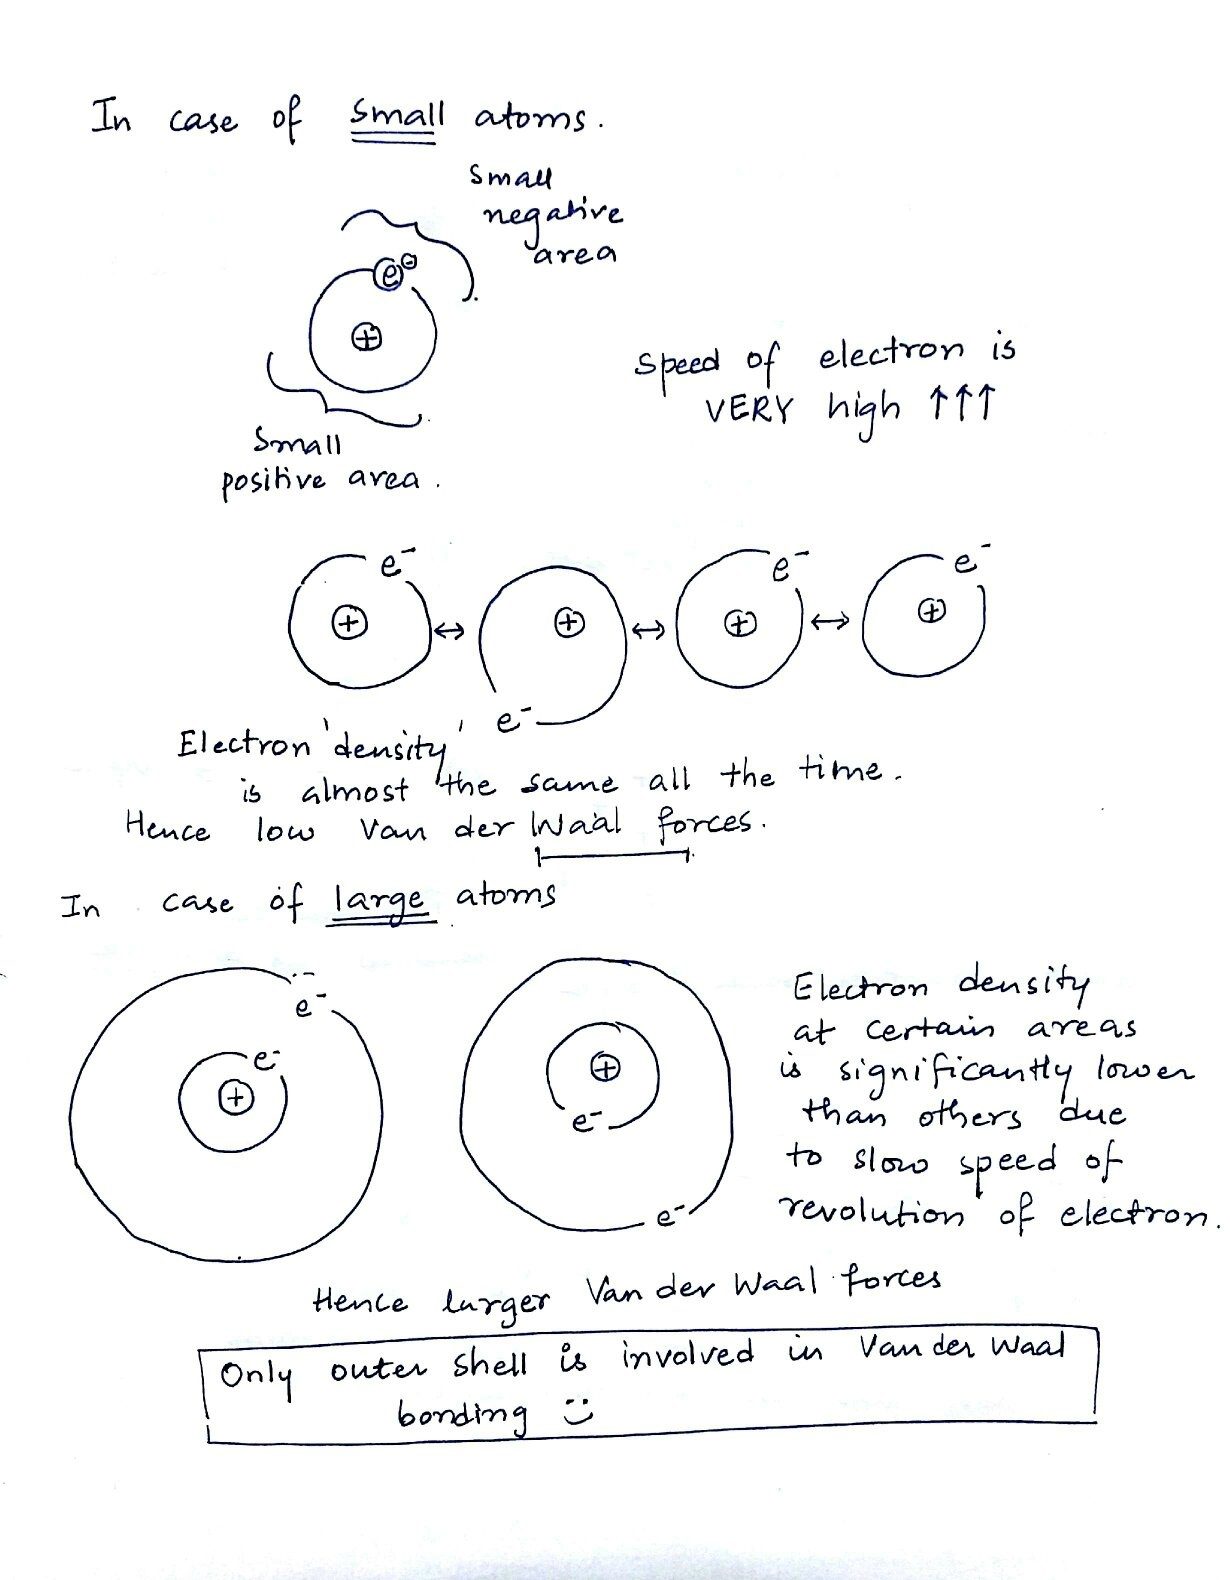 In case of small atoms.
small
negative
area
e⊖
⊕
Speed of electron is
VERY high ↑↑↑
Small
positive area.
e⁻ e⁻ e⁻
⊕ ↔ ⊕ ↔ ⊕ ↔ ⊕
e⁻
Electron 'density'
is almost the same all the time.
Hence low Van der Waal forces.
In case of large atoms
e⁻
e⁻
⊕
⊕
e⁻
e⁻
Electron density
at certain areas
is significantly lower
than others due
to slow speed of
revolution of electron.
Hence larger Van der Waal forces
Only outer shell is involved in Van der Waal
bonding :)